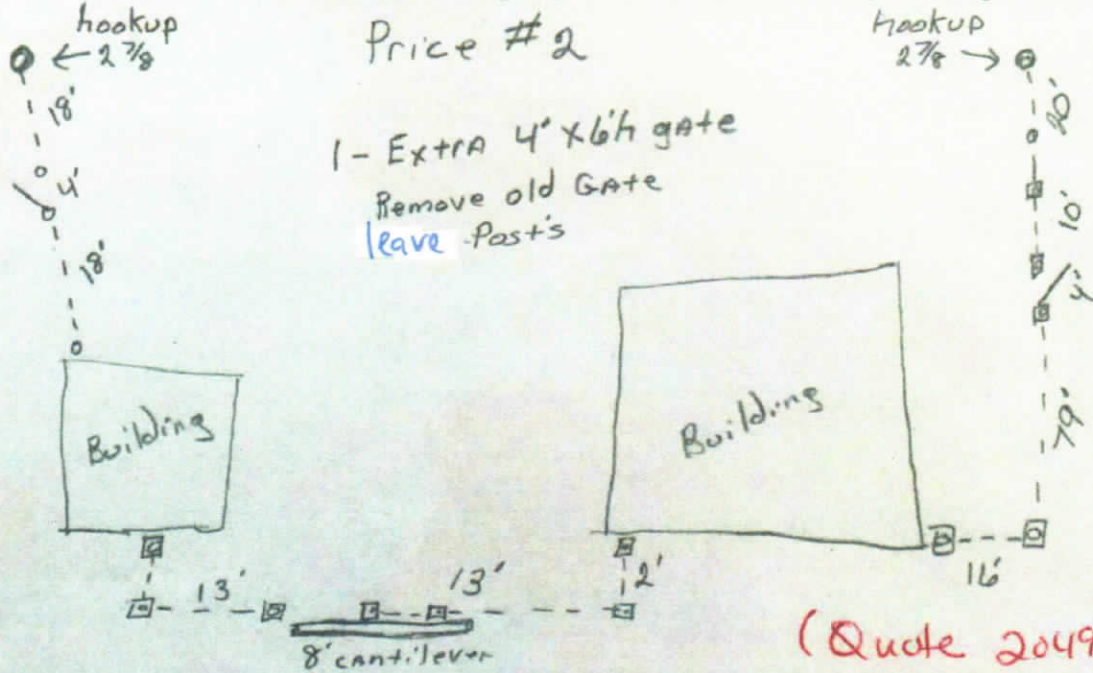 hookup
2 7/8
Price #2
hookup
2 7/8
18'
20'
1- Extra 4' x 6'h gate
4'
Remove old Gate
leave Post's
10'
18'
4'
Building
Building
79'
13'
13'
2'
16'
8' cantilever
(Quote 2049